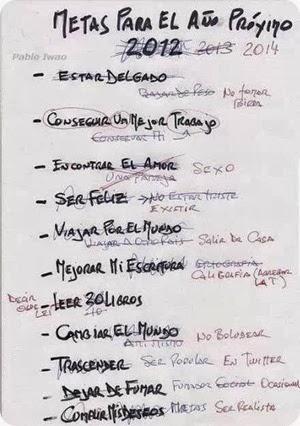 METAS PARA EL AÑO PRÓXIMO
2012 2013 2014
Pablo Iwao
- ESTAR DELGADO
BAJAR DE PESO NO TOMAR
- CONSEGUIR UN MEJOR TRABAJO
CONSERVAR MI
- ENCONTRAR EL AMOR SEXO
UNA PAREJA
- SER FELIZ → NO ESTAR TRISTE
EXISTIR
- VIAJAR POR EL MUNDO
VIAJAR A OTRO PAÍS SALIR DE CASA
- MEJORAR MI ESCRITURA ORTOGRAFÍA
CALIGRAFÍA
DECIR QUE LEÍ
- LEER 30 LIBROS
10
- CAMBIAR EL MUNDO NO BOLUDEAR
A MI MISMO
- TRASCENDER SER POPULAR EN TWITTER
- DEJAR DE FUMAR FUMADOR SOCIAL OCASIONAL
- CUMPLIR MIS DESEOS METAS SER REALISTA